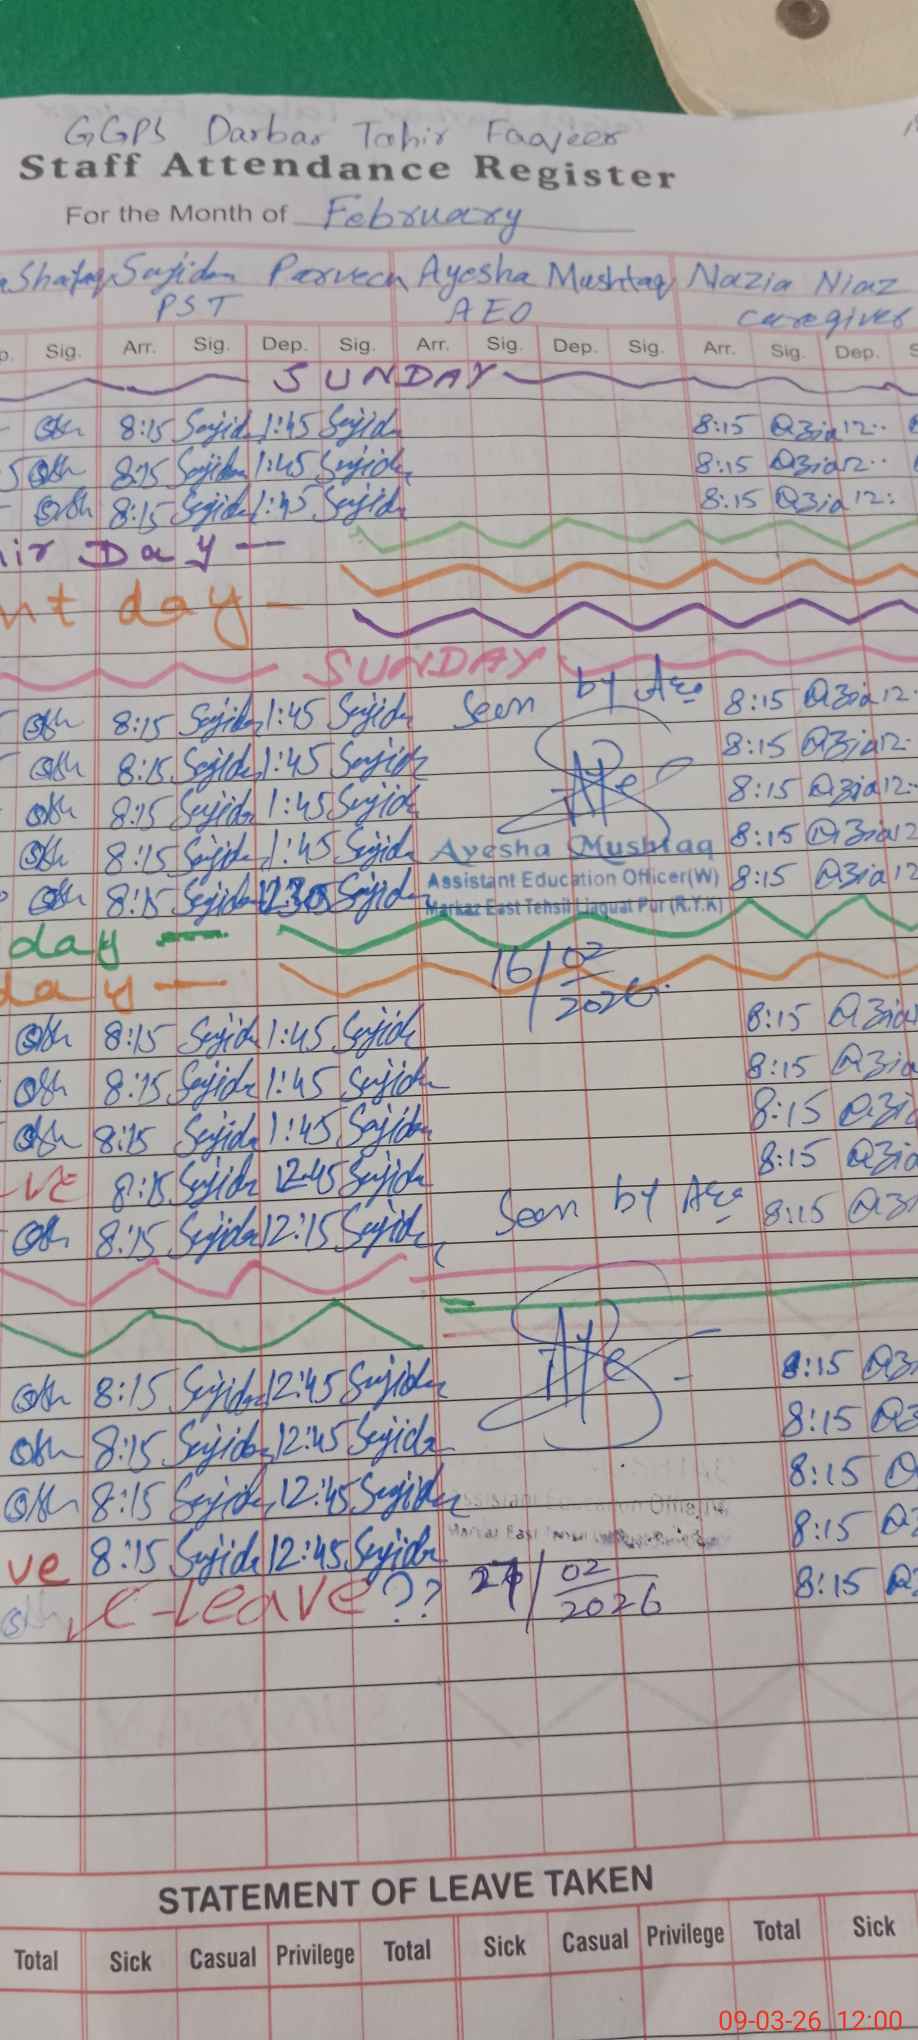 GGPS Darbar Tahir Faqeer
Staff Attendance Register
For the Month of February
Shafaq Sajida Parveen Ayesha Mushtaq Nazia Niaz
PST AEO Caregiver
Sig. Arr. Sig. Dep. Sig. Arr. Sig. Dep. Sig. Arr. Sig. Dep.
SUNDAY
8:15 Sajida 1:45 Sajida 8:15 12
8:15 Sajida 1:45 Sajida 8:15 12
8:15 Sajida 1:45 Sajida 8:15 12:
ir Day
nt day
SUNDAY
8:15 Sajida 1:45 Sajida Seen by Aeo 8:15 12
8:15 Sajida 1:45 Sajida 8:15 12
8:15 Sajida 1:45 Sajida 8:15 12
8:15 Sajida 1:45 Sajida Ayesha Mushtaq 8:15 12
8:15 Sajida 12:30 Sajida Assistant Education Officer(W) 8:15 12
Markaz East Tehsil Liaquat Pur (R.Y.K)
day
day 16/02/2026
8:15 Sajida 1:45 Sajida 8:15
8:15 Sajida 1:45 Sajida 8:15
8:15 Sajida 1:45 Sajida 8:15
ve 8:15 Sajida 12:45 Sajida 8:15
8:15 Sajida 12:15 Sajida Seen by Aeo 8:15
8:15 Sajida 12:45 Sajida 8:15
8:15 Sajida 12:45 Sajida 8:15
8:15 Sajida 12:45 Sajida 8:15
ve 8:15 Sajida 12:45 Sajida 8:15
C-Leave ?? 27/02/2026 8:15
STATEMENT OF LEAVE TAKEN
Total Sick Casual Privilege Total Sick Casual Privilege Total Sick
09-03-26 12:00